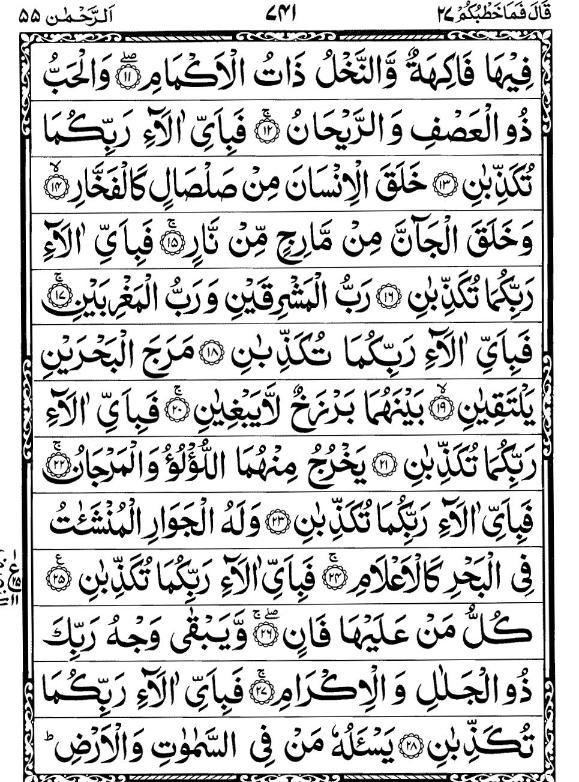 قَالَ فَمَا خَطْبُكُمْ ٢٧ ٧٤١ اَلرَّحْمٰن ٥٥
فِيْهَا فَاكِهَةٌ وَّالنَّخْلُ ذَاتُ الْاَكْمَامِ ۖ ۝١١ وَالْحَبُّ
ذُو الْعَصْفِ وَالرَّيْحَانُ ۚ ۝١٢ فَبِاَيِّ اٰلَآءِ رَبِّكُمَا
تُكَذِّبٰنِ ۝١٣ خَلَقَ الْاِنْسَانَ مِنْ صَلْصَالٍ كَالْفَخَّارِ ۙ ۝١٤
وَخَلَقَ الْجَآنَّ مِنْ مَّارِجٍ مِّنْ نَّارٍ ۚ ۝١٥ فَبِاَيِّ اٰلَآءِ
رَبِّكُمَا تُكَذِّبٰنِ ۝١٦ رَبُّ الْمَشْرِقَيْنِ وَرَبُّ الْمَغْرِبَيْنِ ۚ ۝١٧
فَبِاَيِّ اٰلَآءِ رَبِّكُمَا تُكَذِّبٰنِ ۝١٨ مَرَجَ الْبَحْرَيْنِ
يَلْتَقِيٰنِ ۙ ۝١٩ بَيْنَهُمَا بَرْزَخٌ لَّايَبْغِيٰنِ ۚ ۝٢٠ فَبِاَيِّ اٰلَآءِ
رَبِّكُمَا تُكَذِّبٰنِ ۝٢١ يَخْرُجُ مِنْهُمَا اللُّؤْلُؤُ وَالْمَرْجَانُ ۚ ۝٢٢
فَبِاَيِّ اٰلَآءِ رَبِّكُمَا تُكَذِّبٰنِ ۝٢٣ وَلَهُ الْجَوَارِ الْمُنْشَئٰتُ
فِى الْبَحْرِ كَالْاَعْلَامِ ۚ ۝٢٤ فَبِاَيِّ اٰلَآءِ رَبِّكُمَا تُكَذِّبٰنِ ۧ ۝٢٥
كُلُّ مَنْ عَلَيْهَا فَانٍ ۚ ۖ ۝٢٦ وَّيَبْقٰى وَجْهُ رَبِّكَ
ذُو الْجَلٰلِ وَالْاِكْرَامِ ۚ ۝٢٧ فَبِاَيِّ اٰلَآءِ رَبِّكُمَا
تُكَذِّبٰنِ ۝٢٨ يَسْـَٔلُهٗ مَنْ فِى السَّمٰوٰتِ وَالْاَرْضِ ؕ